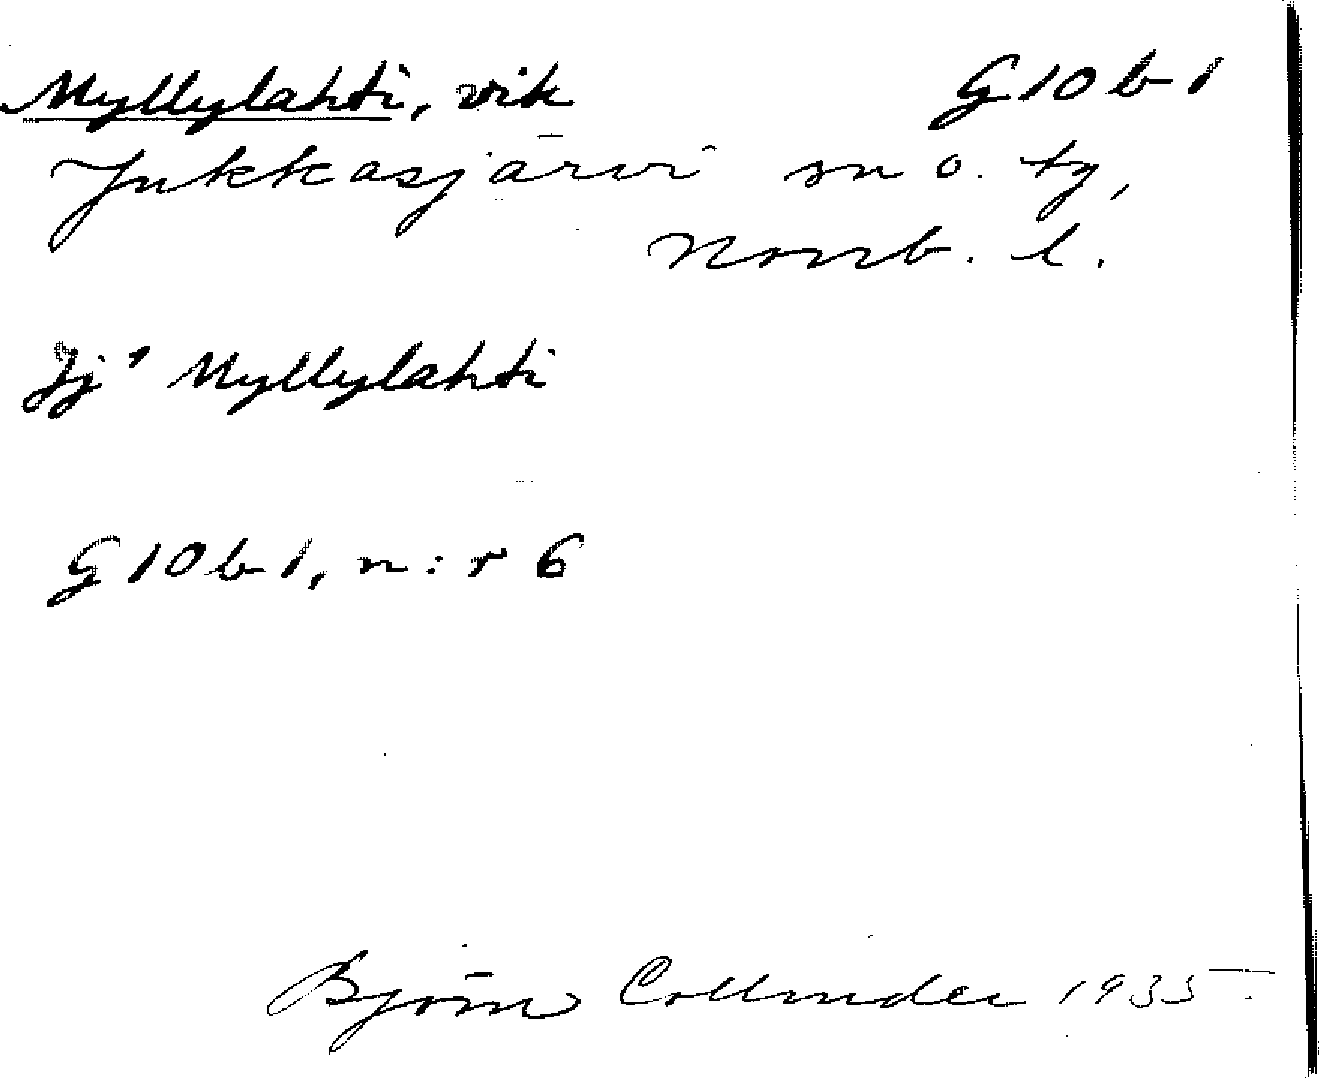 Myllylahti, vik G10b1
Jukkasjärvi sn o. tg,
Norrb. l.
Jj' Myllylahti
G10b1, n:r 6
Björn Collinder 1935.